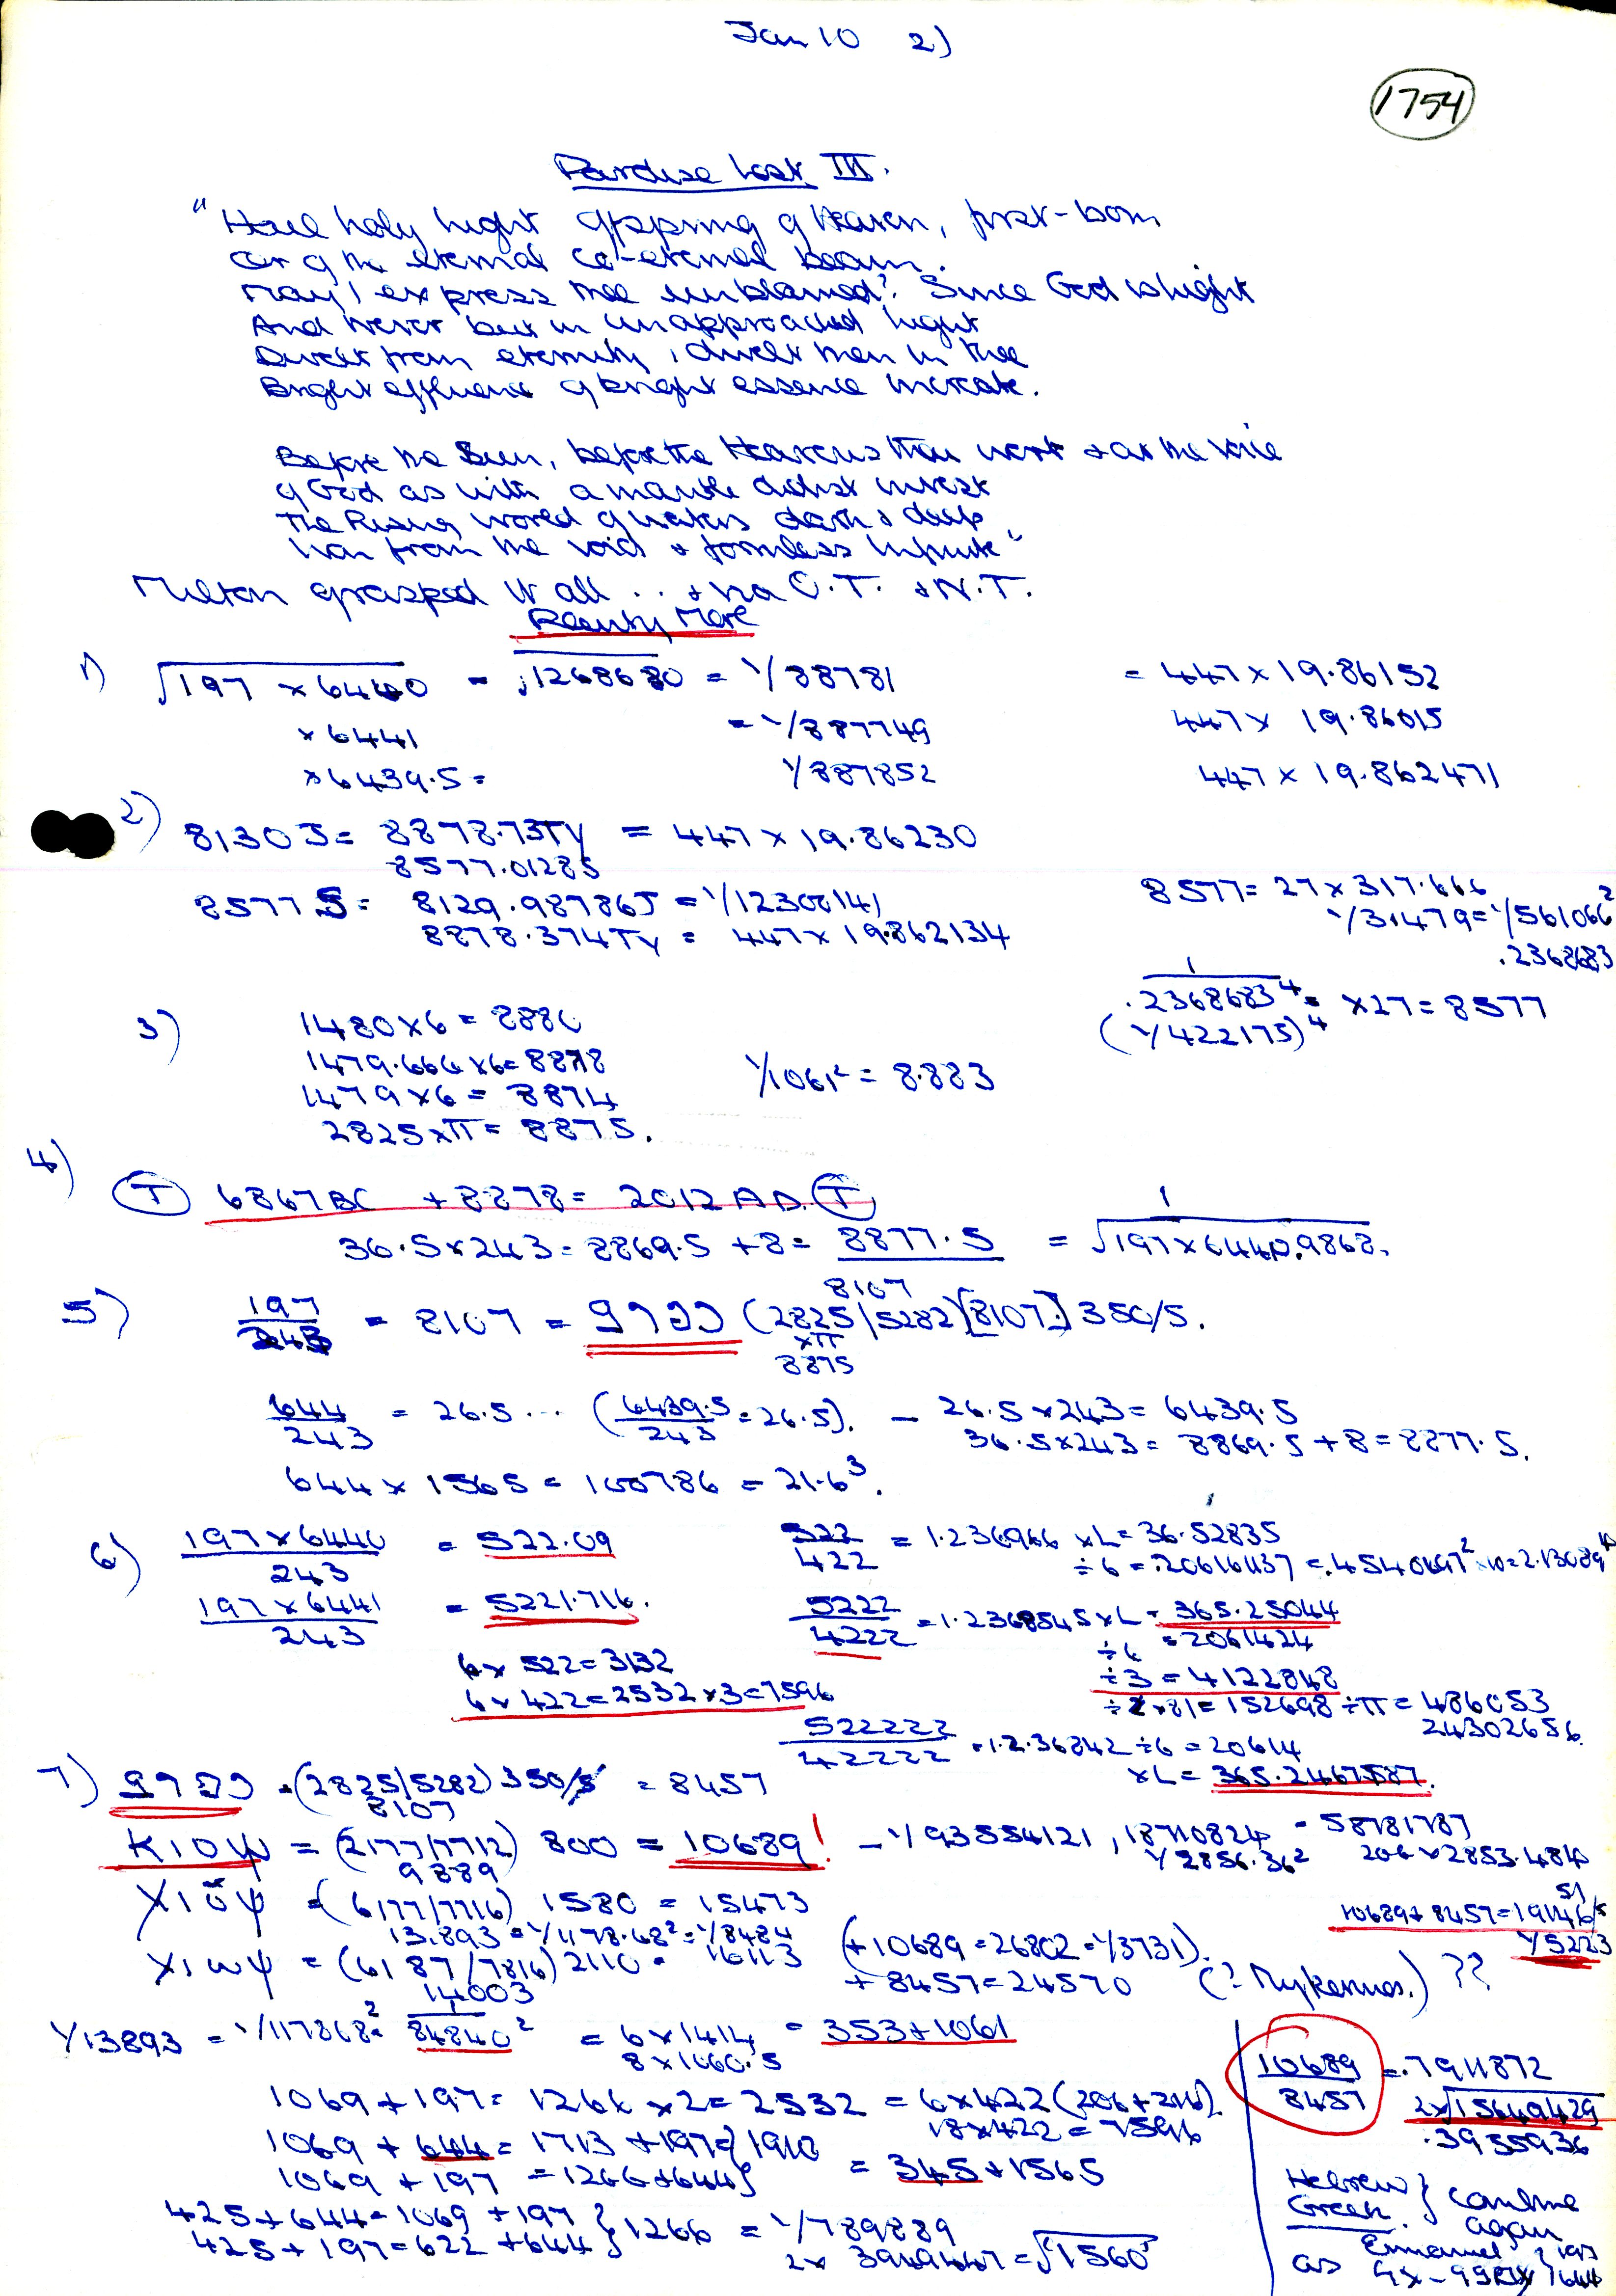 Jan 10 2)
1754
Pardise Lost III.
"Hail holy light offspring of Heaven, first-born
Or of the eternal co-eternal beam.
May I express thee unblamed? Since God is light
And never but in unapproached light
Dwelt from eternity, dwelt then in thee
Bright effluence of bright essence increate.
Before the Sun, before the Heavens thou wert & at the voice
of God as with a mantle didst invest
The Rising world of waters dark & deep
Won from the void & formless infinite"
Milton grasped it all .. & via O.T. & N.T.
1) √197 × 6440 = √1268680 = 1/88781 = 447 × 19.86152
× 6441 = 1/887749 447 × 19.86015
× 6439.5 = 1/887852 447 × 19.862471
2) 8130J = 8878.73TY = 447 × 19.86230
8577.01285
8577 S = 8129.98786J = 1/12300141
8878.374TY = 447 × 19.862134
8577 = 27 × 317.666
1/3.1479 = 1/561066²
.2368683
1/.2368683⁴ = ×27 = 8577
(1/422175)⁴
3) 1480×6 = 8880
1479.666×6 = 8878
1479×6 = 8874
2825×π = 8875.
1/1061² = 8.883
4) (T) 6867BC + 8878 = 2012 AD. (T)
36.5×243 = 8869.5 + 8 = 8877.5 = 1/√197×6440.9868.
5) 197/243 = 8107 = (2825/5282)[8107] 350/5.
8107
×π
8875
644/243 = 26.5 ... (6439.5/243 = 26.5). – 26.5×243 = 6439.5
36.5×243 = 8869.5 + 8 = 8877.5.
644 × 1565 = 100786 = 21.6³.
6) 197×6440/243 = 522.09
522/422 = 1.236966 ×L = 36.52835
÷6 = .20616137
197×6441/243 = 5221.716.
5222/4222 = 1.2368545×L = 365.25044
÷6 = 2061424
÷3 = 4122848
6×522 = 3132
6×422 = 2532×3 = 7596
= 152698 ÷π = 486053
24302656.
522222/42222 = 1.236842 ÷6 = 20614
×L = 365.2467587.
7) (2825/5282) 350/5 = 8457
8107
ΚΙΟΨ = (2177/7712) 800 = 10689! – 1/93554121, 18710824 = 58781787
9889
1/2856.36² 206×2853.484
ΧΙΟΨ = (6177/7716) 1580 = 15473
13.893 = 1/1178.68² = 1/8484
10689 + 8457 = 19146
1/5223
ΧΙωΨ = (6187/7816) 2110 = 16113
14003
(+10689 = 26802 = 1/3731).
+8457 = 24570 (? Mykerinos.) ??
1/13893 = 1/117868² = 1/84840² = 6×1414 = 353+1061
8×1060.5
1069 + 197 = 1266 ×2 = 2532 = 6×422 (206+216)
18×422 = 7596
1069 + 644 = 1713 + 197 } 1910
1069 + 197 = 1266 + 644 } = 345 + 1565
425 + 644 = 1069 + 197
425 + 197 = 622 + 644 } 1266 = 1/789889
2 × 3949447 = √1560
10689/8457 = .7911872
2×√15649429
.3955936
Hebrew
Greek } combine
again
as Emmanuel } 197
644